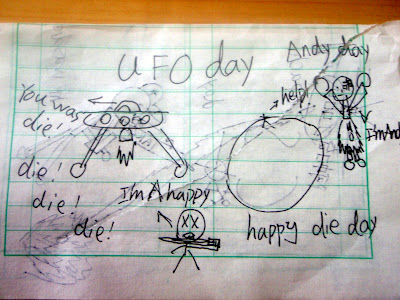 UFO day
Andy day
help!
You was
die!
I'm And
die!
I'm A happy
die!
die!
happy die day